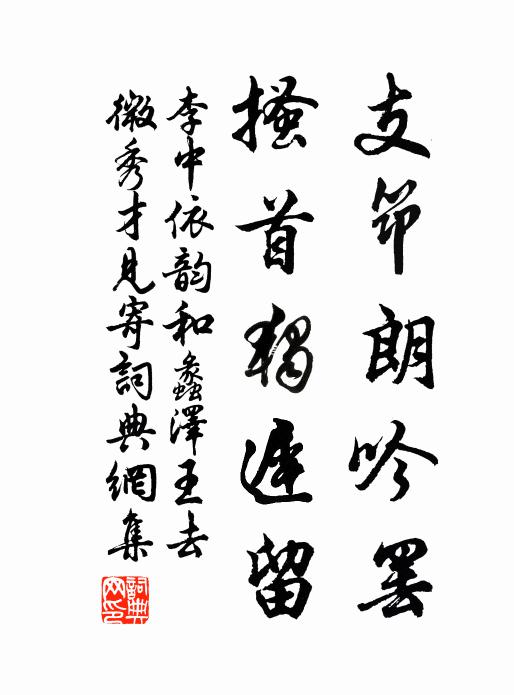 支筇朗吟罢
搔首独遲留
李中依韵和蠡澤王去
微秀才見寄詞典網集
詞典网印